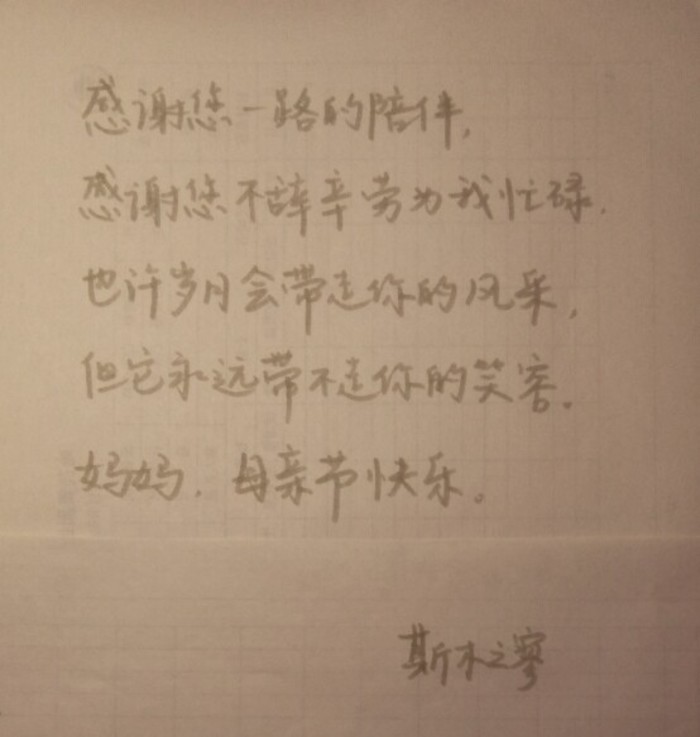 感谢您一路的陪伴,
感谢您不辞辛劳为我忙碌.
也许岁月会带走你的风采,
但它永远带不走你的笑容。
妈妈,母亲节快乐。
斯木之寥